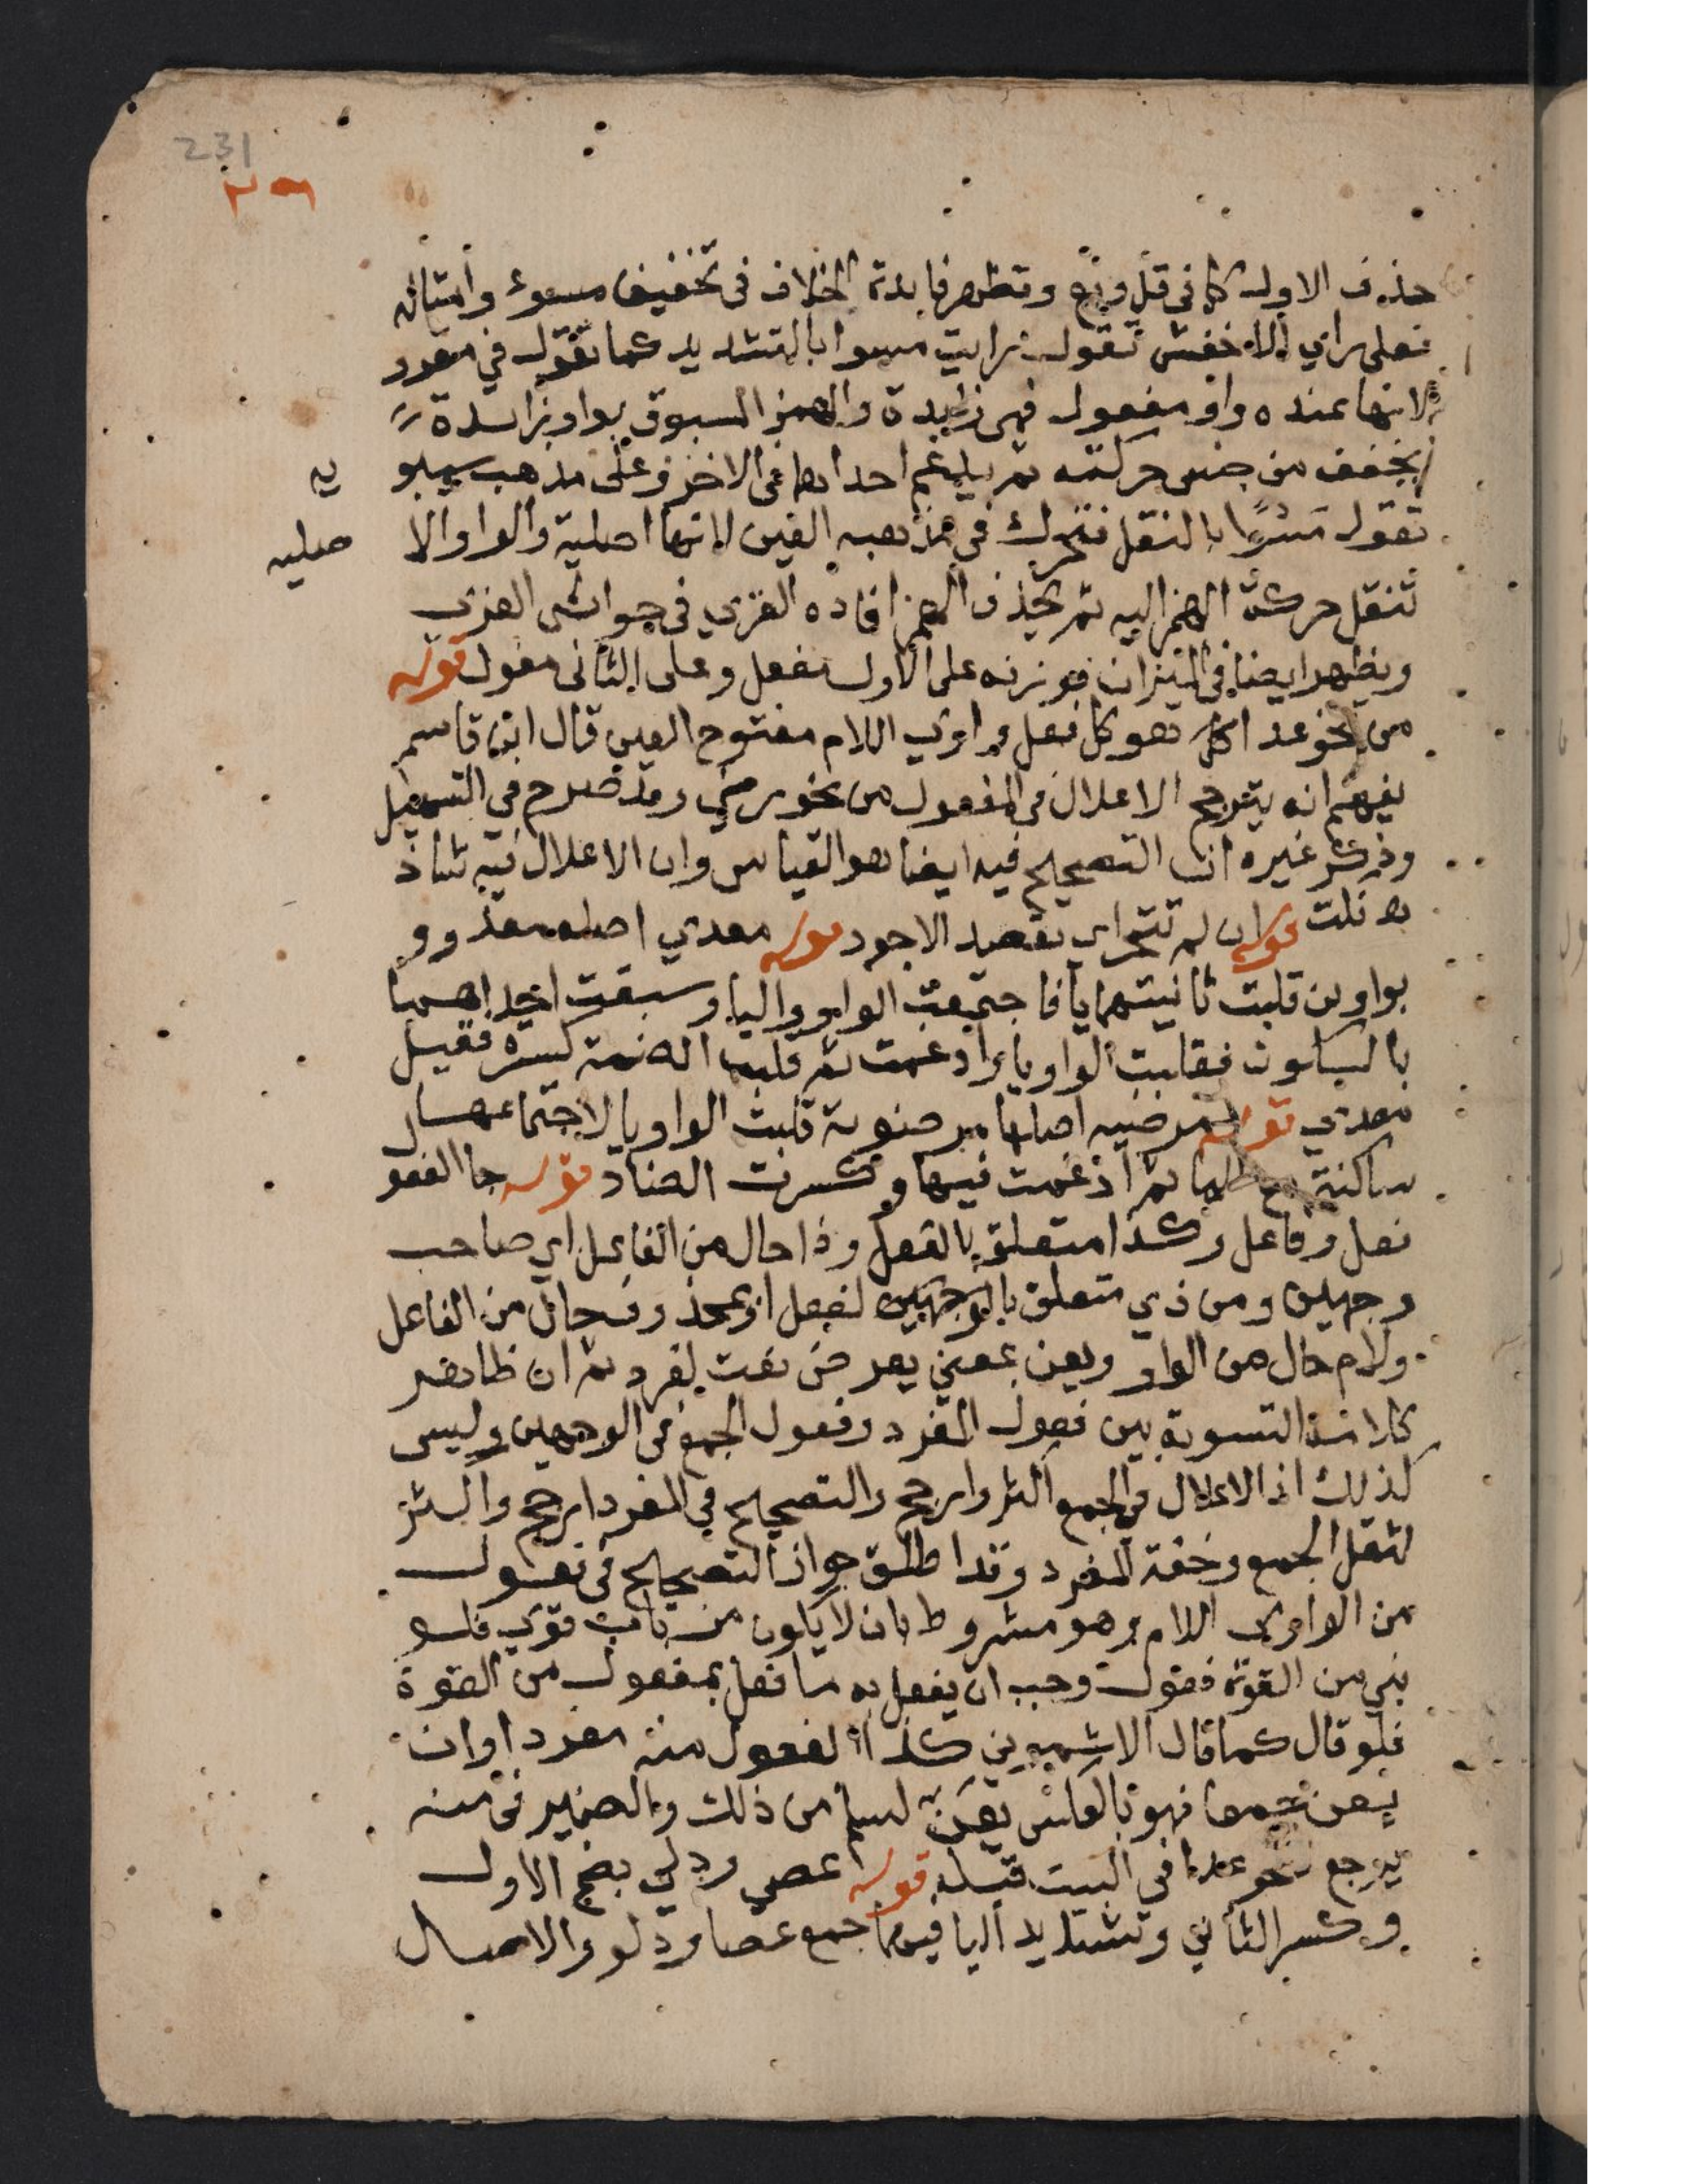 231
٢٣٦
حذف الاول كما في قل وبع وتظهر فايدة الخلاف في تخفيف مسوء وامثاله
فعلى راي الاخفش تقول رايت مسوا بالتشديد كما تقول في مقرو
لانها عنده واو مفعول فهي زايدة والهمز المسبوق بواو زايدة
يخفف من جنس حركته ثم يدغم احداهما في الاخر وعلى مذهب سيبو يه
تقول مسوا بالنقل فتحرك في مذهبه العين لانها اصلية والواو الا صليه
تنقل حركة الهمز اليه ثم يحذف الهمز افاده الغزي في حواشي الغزي
ويظهر ايضا في الميزان فوزنه على الاول مفعل وعلى الثاني مفول قوله
من نحو عدا الخ هو كل فعل واوي اللام مفتوح العين قال ابن قاسم
يفهم انه يترجح الاعلال في المفعول من نحو رضي وقد صرح في التسهيل
وذكر غيره ان التصحيح فيه ايضا هو القياس وان الاعلال فيه شاذ
قوله ان لم تتحر اي تقصد الاجود قوله معدي اصله معدوو
بواوين قلبت ثانيتهما يا فاجتمعت الواو واليا وسبقت احداهما
بالسكون فقلبت الواو يا وادغمت ثم قلبت الضمة كسرة فقيل
معدي قوله مرضيه اصلها مرضوية قلبت الواو يا لاجتماعها
ساكنة مع اليا ثم ادغمت فيها وكسرت الضاد قوله جا الفعو
فعل وفاعل وكذا متعلق بالفعل وذا حال من الفاعل اي صاحب
وجهين ومن ذي متعلق بالوجهين لفعل او بمحذوف حال من الفاعل
ولام حال من الواو ويعن بمعنى يعرض نعت لفرد ثم ان ظاهر
كلامه التسوية بين فعول المفرد وفعول الجمع في الوجهين وليس
كذلك اذ الاعلال في الجمع اكثر وارجح والتصحيح في المفرد ارجح واكثر
لثقل الجمع وخفة المفرد وقد اطلق جواز التصحيح في فعول
من الواوي اللام وهو مشروط بان لا يكون من باب قوي فلو
بني من القوة فعول وجب ان يفعل به ما فعل بمفعول من القوة
فلو قال كما قال الاشموني كذا الفعول منه مفردا وان
يعن جمعا فهو بالعكس يعن لسلم من ذلك والضمير في منه
يرجع لنحو عدا في البيت قبله قوله عصي ودلي بضم الاول
وكسر الثاني وتشديد اليا فيهما جمع عصا ودلو والاصل